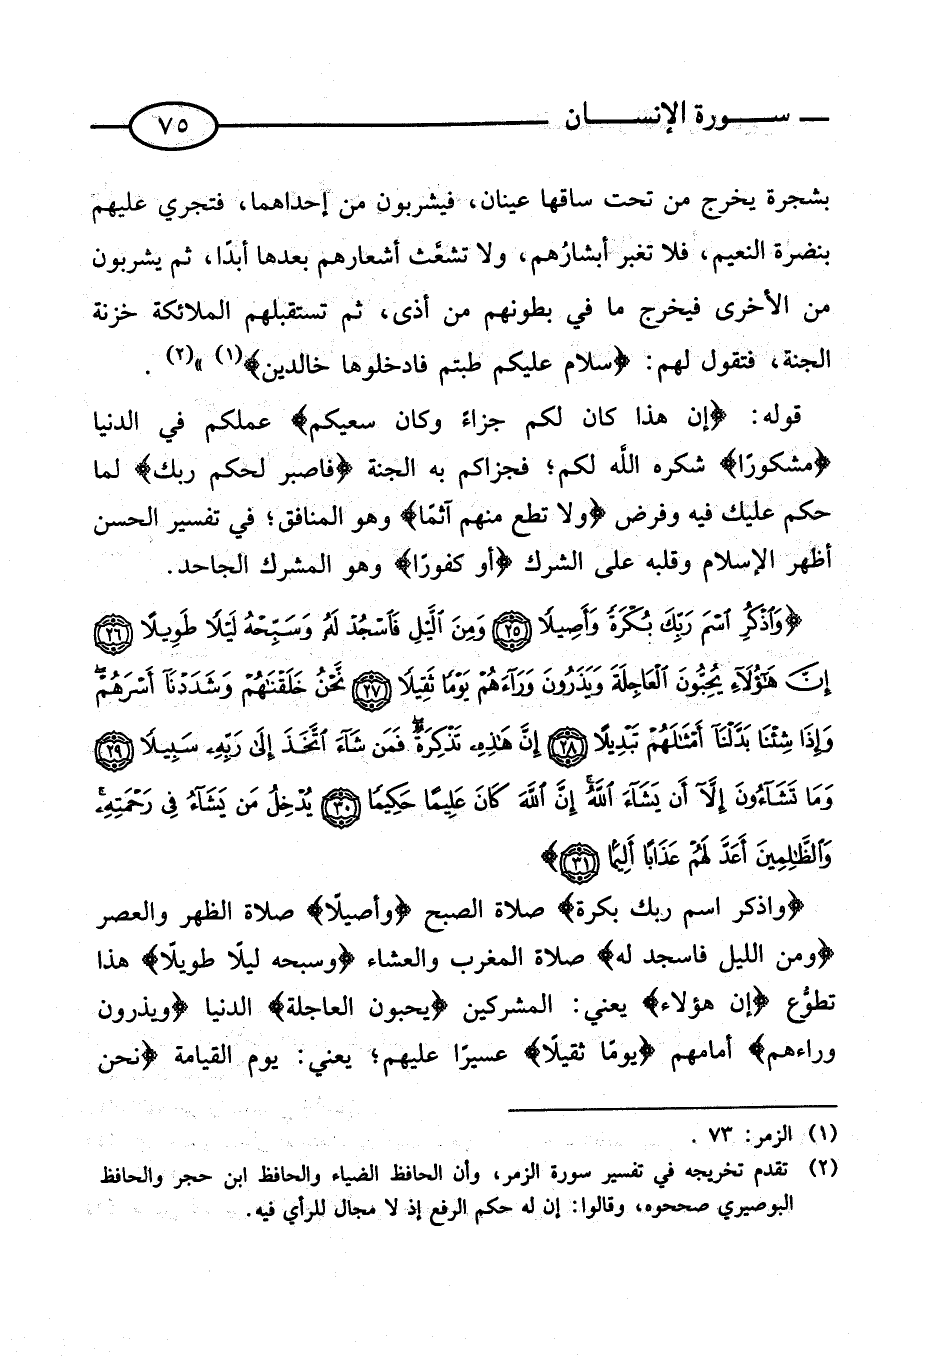 سورة الإنسان ٧٥
بشجرة يخرج من تحت ساقها عينان، فيشربون من إحداهما، فتجري عليهم
بنضرة النعيم، فلا تغبر أبشارُهم، ولا تشعَّث أشعارهم بعدها أبدًا، ثم يشربون
من الأخرى فيخرج ما في بطونهم من أذى، ثم تستقبلهم الملائكة خزنة
الجنة، فتقول لهم: ﴿سلام عليكم طبتم فادخلوها خالدين﴾(١) »(٢) .
قوله: ﴿إن هذا كان لكم جزاءً وكان سعيكم﴾ عملكم في الدنيا
﴿مشكورًا﴾ شكره اللَّه لكم؛ فجزاكم به الجنة ﴿فاصبر لحكم ربك﴾ لما
حكم عليك فيه وفرض ﴿ولا تطع منهم آثمًا﴾ وهو المنافق؛ في تفسير الحسن
أظهر الإسلام وقلبه على الشرك ﴿أو كفورًا﴾ وهو المشرك الجاحد.
﴿وَٱذْكُرِ ٱسْمَ رَبِّكَ بُكْرَةً وَأَصِيلًا ٢٥ وَمِنَ ٱلَّيْلِ فَٱسْجُدْ لَهُۥ وَسَبِّحْهُ لَيْلًا طَوِيلًا ٢٦
إِنَّ هَٰٓؤُلَآءِ يُحِبُّونَ ٱلْعَاجِلَةَ وَيَذَرُونَ وَرَآءَهُمْ يَوْمًا ثَقِيلًا ٢٧ نَّحْنُ خَلَقْنَٰهُمْ وَشَدَدْنَآ أَسْرَهُمْۖ
وَإِذَا شِئْنَا بَدَّلْنَآ أَمْثَٰلَهُمْ تَبْدِيلًا ٢٨ إِنَّ هَٰذِهِۦ تَذْكِرَةٌۖ فَمَن شَآءَ ٱتَّخَذَ إِلَىٰ رَبِّهِۦ سَبِيلًا ٢٩
وَمَا تَشَآءُونَ إِلَّآ أَن يَشَآءَ ٱللَّهُۚ إِنَّ ٱللَّهَ كَانَ عَلِيمًا حَكِيمًا ٣٠ يُدْخِلُ مَن يَشَآءُ فِى رَحْمَتِهِۦۚ
وَٱلظَّٰلِمِينَ أَعَدَّ لَهُمْ عَذَابًا أَلِيمًۢا ٣١﴾
﴿واذكر اسم ربك بكرة﴾ صلاة الصبح ﴿وأصيلًا﴾ صلاة الظهر والعصر
﴿ومن الليل فاسجد له﴾ صلاة المغرب والعشاء ﴿وسبحه ليلًا طويلًا﴾ هذا
تطوُّع ﴿إن هؤلاء﴾ يعني: المشركين ﴿يحبون العاجلة﴾ الدنيا ﴿ويذرون
وراءهم﴾ أمامهم ﴿يومًا ثقيلًا﴾ عسيرًا عليهم؛ يعني: يوم القيامة ﴿نحن
(١) الزمر: ٧٣ .
(٢) تقدم تخريجه في تفسير سورة الزمر، وأن الحافظ الضياء والحافظ ابن حجر والحافظ
البوصيري صححوه، وقالوا: إن له حكم الرفع إذ لا مجال للرأي فيه.